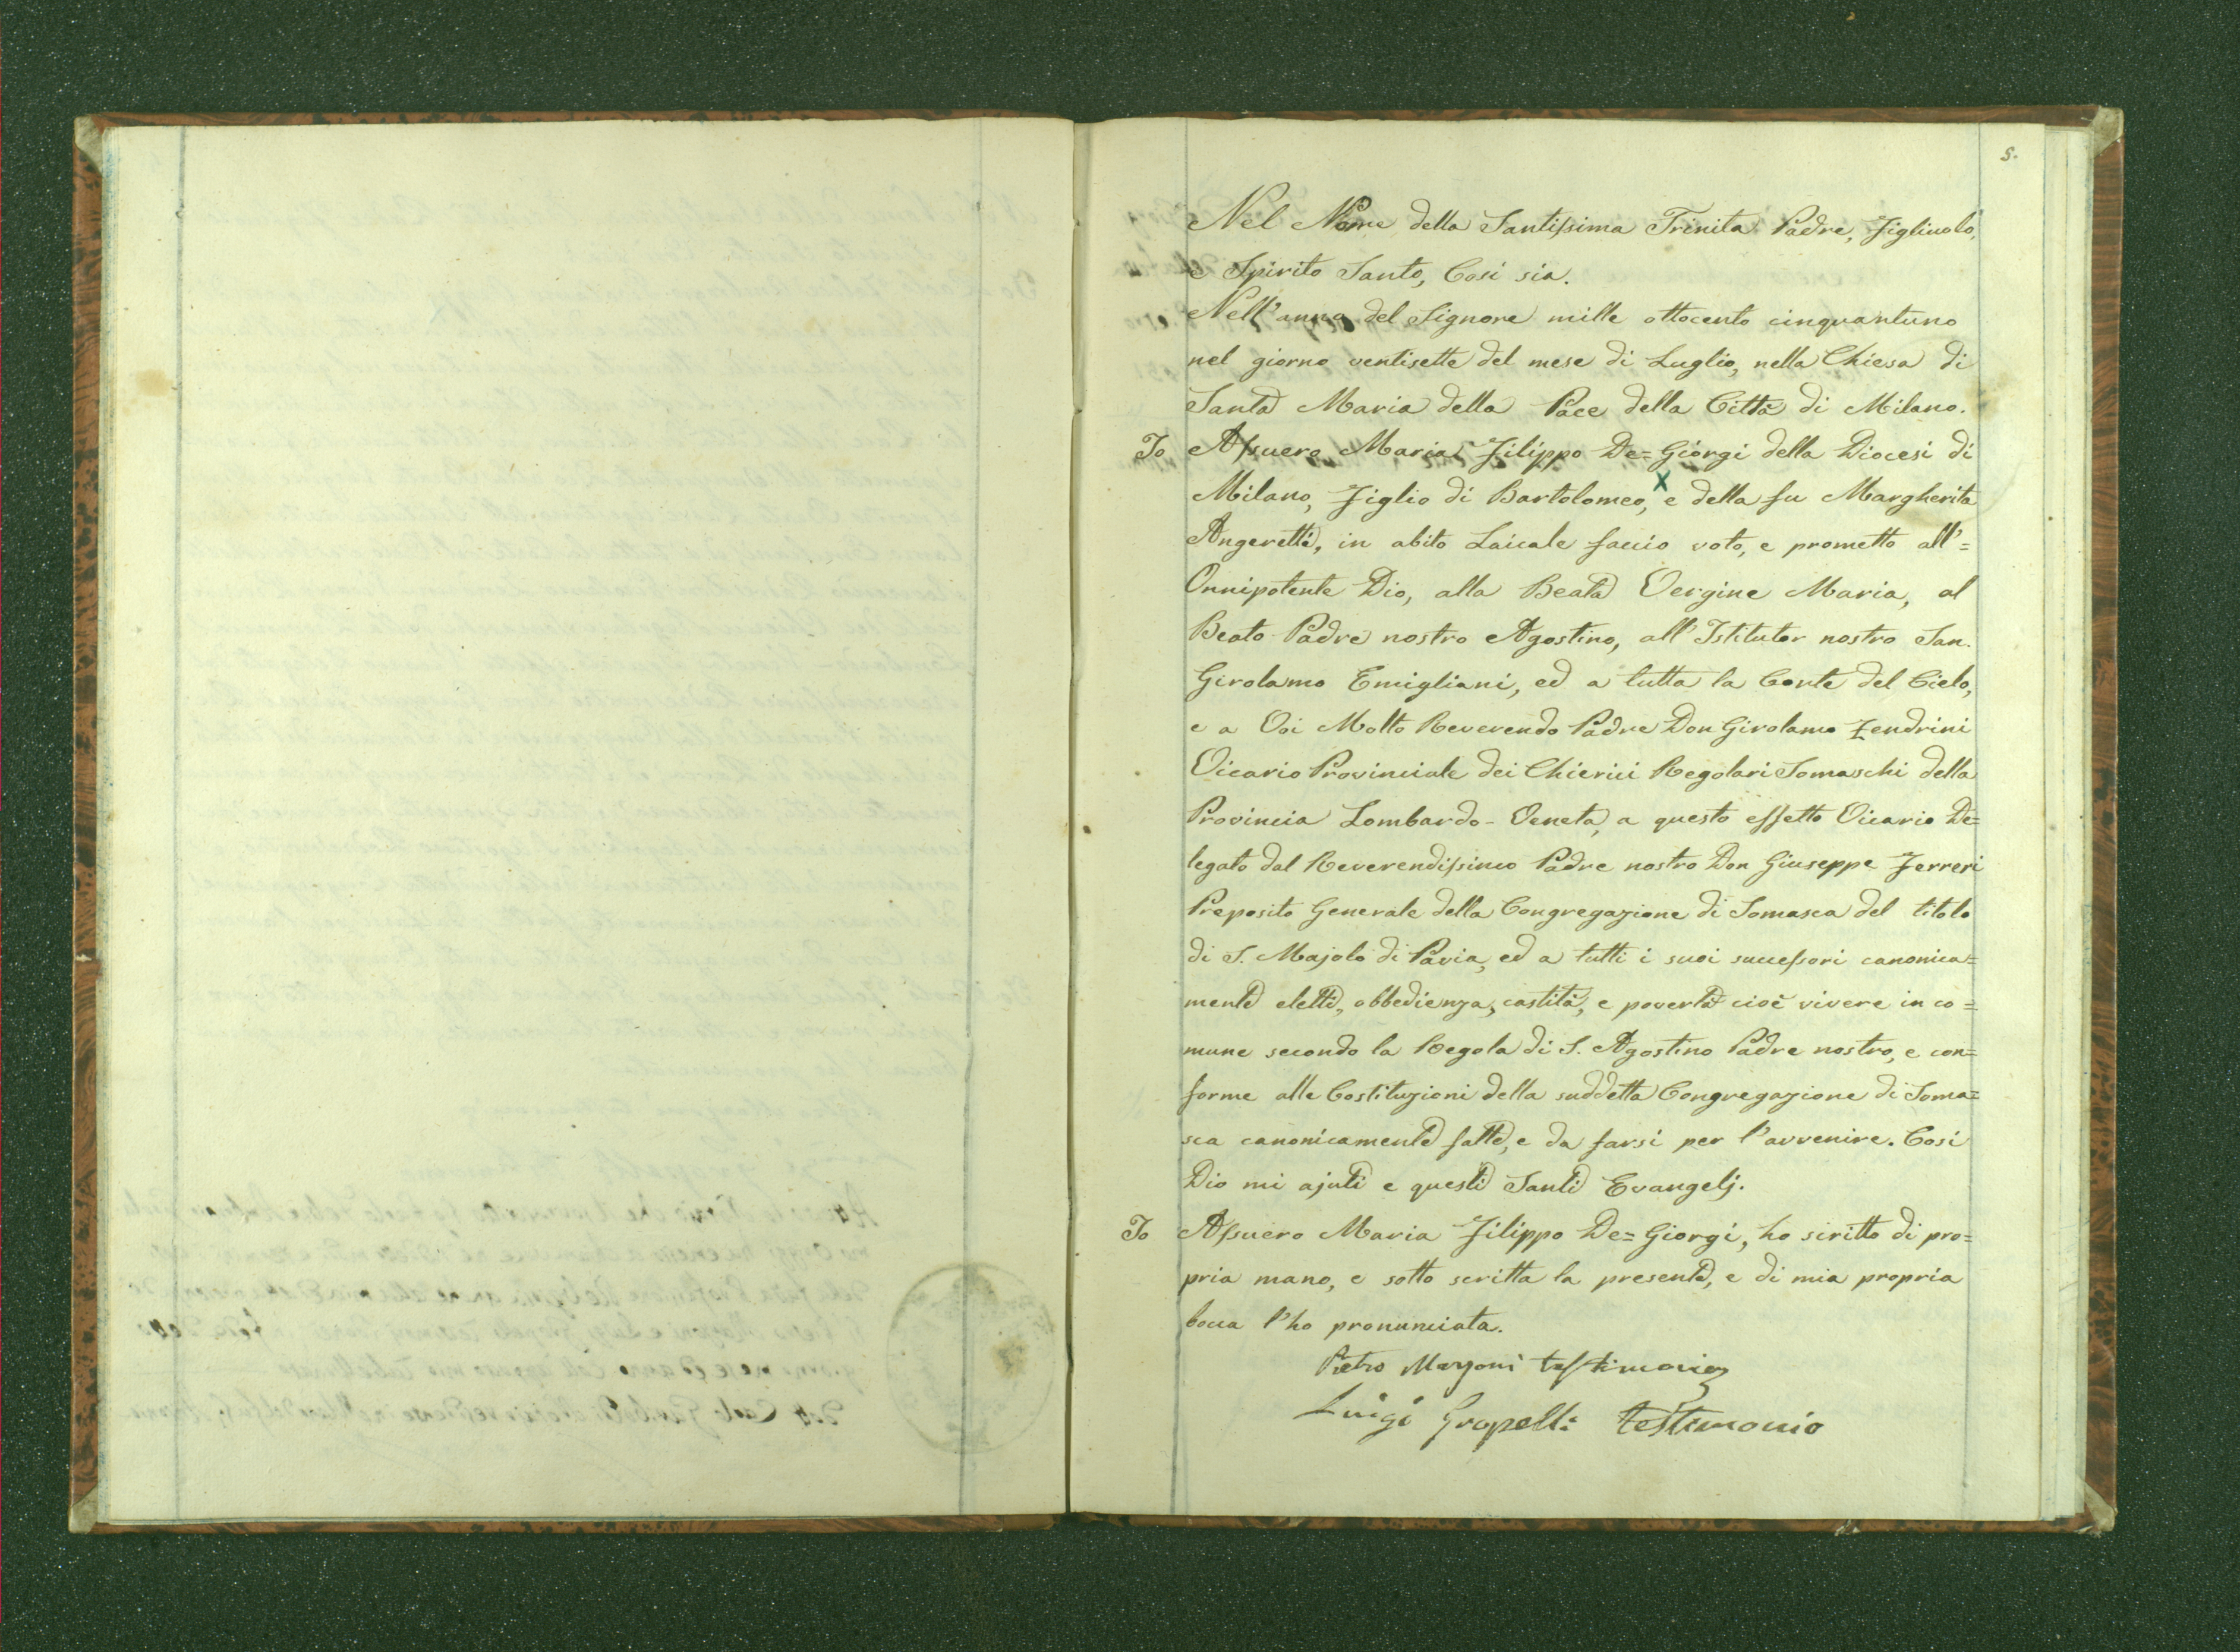 5.
Nel Nome della Santissima Trinita Padre, Figliuolo,
e Spirito Santo, Così sia.
Nell'anno del Signore mille ottocento cinquantuno
nel giorno ventisette del mese di Luglio, nella Chiesa di
Santa Maria della Pace della Città di Milano.
Io Assuero Maria Filippo De=Giorgi della Diocesi di
Milano, Figlio di Bartolomeo, e della fu Margherita
Angeretti, in abito Laicale faccio voto, e prometto all'=
Onnipotente Dio, alla Beata Vergine Maria, al
Beato Padre nostro Agostino, all'Istitutor nostro San
Girolamo Emigliani, ed a tutta la Corte del Cielo,
e a Voi Molto Reverendo Padre Don Girolamo Zendrini
Vicario Provinciale dei Chierici Regolari Somaschi della
Provincia Lombardo-Veneta, a questo effetto Vicario De=
legato dal Reverendissimo Padre nostro Don Giuseppe Ferreri
Preposito Generale della Congregazione di Somasca del titolo
di S. Majolo di Pavia, ed a tutti i suoi successori canonica=
mente eletti, obbedienza, castità, e povertà cioè vivere in co=
mune secondo la Regola di S. Agostino Padre nostro, e con=
forme alle Costituzioni della suddetta Congregazione di Soma=
sca canonicamente fatte, e da farsi per l'avvenire. Così
Dio mi ajuti e questi Santi Evangelj.
Io Assuero Maria Filippo De=Giorgi, ho scritto di pro=
pria mano, e sotto scritta la presente, e di mia propria
bocca l'ho pronunciata.
Pietro Marzoni testimonio
Luigi Gropelli testimonio